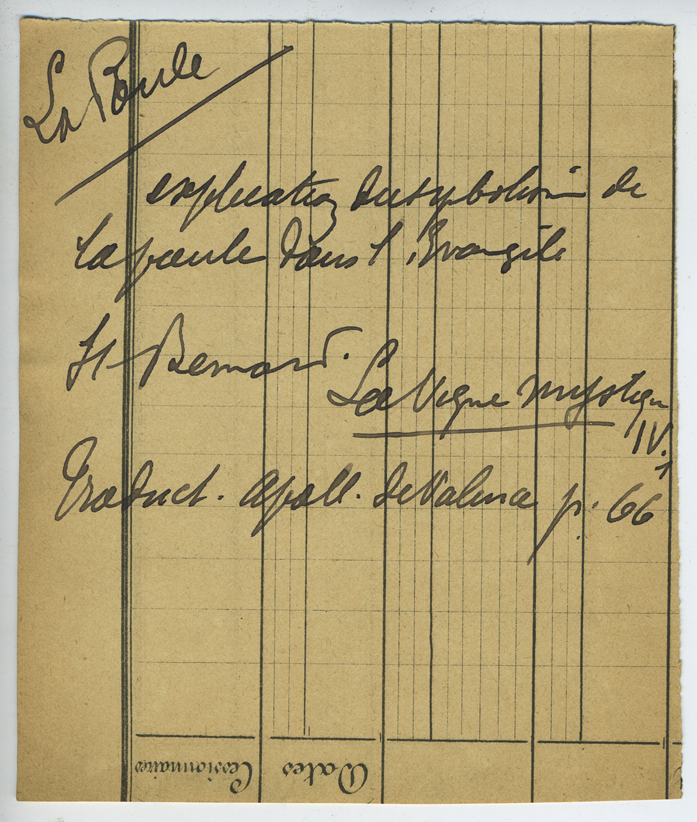 La Poule
explication du symbolisme de
la poule dans l'Evangile
St Bernard.
La Vigne mystique
IV. 1
Traduct. Apoll. de Valence p. 66
Cessionnaires Dates